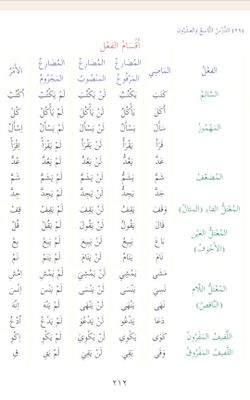 ﴿٢٩﴾ الدَّرْسُ التَّاسِعُ وَالعِشْرُونَ
أَقْسَامُ الفِعْل
الفِعْلُ المَاضِي المُضَارِعُ المَرْفُوعُ المُضَارِعُ المَنْصُوبُ المُضَارِعُ المَجْزُومُ الأَمْرُ
السَّالِمُ كَتَبَ يَكْتُبُ لَنْ يَكْتُبَ لَمْ يَكْتُبْ اُكْتُبْ
المَهْمُوزُ أَكَلَ يَأْكُلُ لَنْ يَأْكُلَ لَمْ يَأْكُلْ كُلْ
سَأَلَ يَسْأَلُ لَنْ يَسْأَلَ لَمْ يَسْأَلْ اِسْأَلْ
قَرَأَ يَقْرَأُ لَنْ يَقْرَأَ لَمْ يَقْرَأْ اِقْرَأْ
المُضَعَّفُ عَدَّ يَعُدُّ لَنْ يَعُدَّ لَمْ يَعُدَّ عُدَّ
شَمَّ يَشَمُّ لَنْ يَشَمَّ لَمْ يَشَمَّ شَمَّ
جَدَّ يَجِدُّ لَنْ يَجِدَّ لَمْ يَجِدَّ جِدَّ
المُعْتَلُّ الفَاءِ (المِثَالُ) وَقَفَ يَقِفُ لَنْ يَقِفَ لَمْ يَقِفْ قِفْ
المُعْتَلُّ العَيْنِ قَالَ يَقُولُ لَنْ يَقُولَ لَمْ يَقُلْ قُلْ
(الأَجْوَفُ) بَاعَ يَبِيعُ لَنْ يَبِيعَ لَمْ يَبِعْ بِعْ
نَامَ يَنَامُ لَنْ يَنَامَ لَمْ يَنَمْ نَمْ
المُعْتَلُّ اللَّامِ مَشَى يَمْشِي لَنْ يَمْشِيَ لَمْ يَمْشِ اِمْشِ
نَسِيَ يَنْسَى لَنْ يَنْسَى لَمْ يَنْسَ اِنْسَ
(النَّاقِصُ) نَهَى يَنْهَى لَنْ يَنْهَى لَمْ يَنْهَ اِنْهَ
دَعَا يَدْعُو لَنْ يَدْعُوَ لَمْ يَدْعُ اُدْعُ
اللَّفِيفُ المَقْرُونُ كَوَى يَكْوِي لَنْ يَكْوِيَ لَمْ يَكْوِ اِكْوِ
اللَّفِيفُ المَفْرُوقُ وَقَى يَقِي لَنْ يَقِيَ لَمْ يَقِ قِ
٢١٢